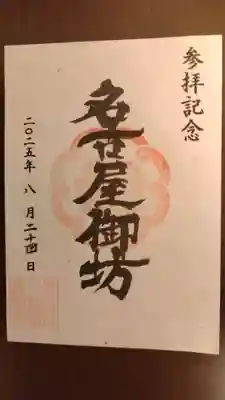 参拝記念
名古屋御坊
二〇二五年 八月二十四日